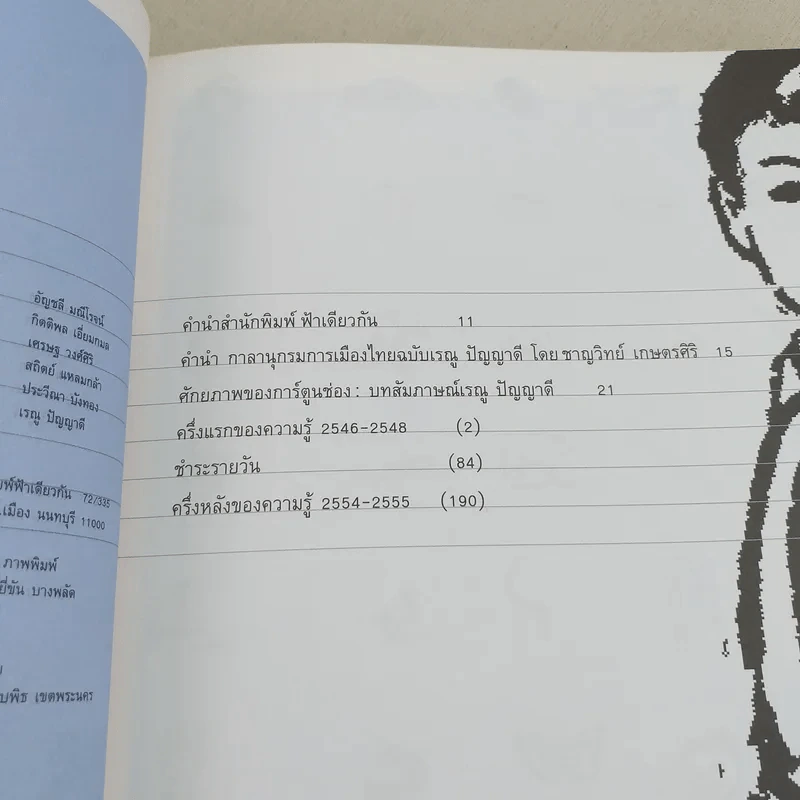 อัญชลี มณีโรจน์
กิตติพล เอี่ยมกมล
เศรษฐ วงศ์ศิริ
สถิตย์ แหลมกล้า
ประวีณา บังทอง
เรณู ปัญญาดี
พ์ฟ้าเดียวกัน 72/335
.เมือง นนทบุรี 11000
ภาพพิมพ์
ยี่ขัน บางพลัด
บพิธ เขตพระนคร
คำนำสำนักพิมพ์ ฟ้าเดียวกัน 11
คำนำ กาลานุกรมการเมืองไทยฉบับเรณู ปัญญาดี โดย ชาญวิทย์ เกษตรศิริ 15
ศักยภาพของการ์ตูนช่อง : บทสัมภาษณ์เรณู ปัญญาดี 21
ครึ่งแรกของความรู้ 2546-2548 (2)
ชำระรายวัน (84)
ครึ่งหลังของความรู้ 2554-2555 (190)